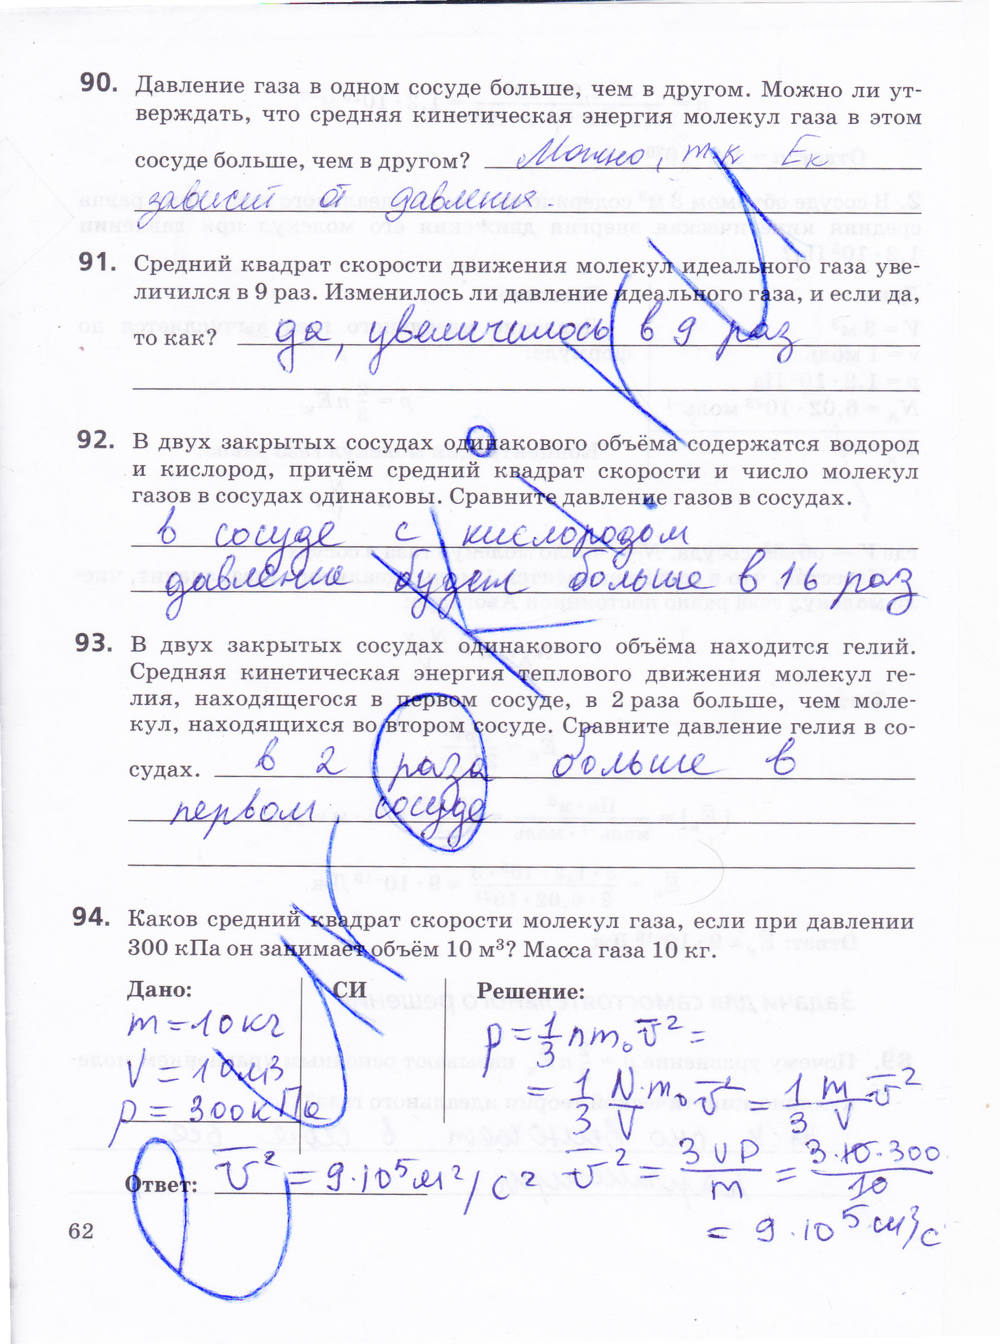 90. Давление газа в одном сосуде больше, чем в другом. Можно ли ут-
верждать, что средняя кинетическая энергия молекул газа в этом
сосуде больше, чем в другом? Можно, т к Eк
зависит от давления.
91. Средний квадрат скорости движения молекул идеального газа уве-
личился в 9 раз. Изменилось ли давление идеального газа, и если да,
то как? да, увеличилось в 9 раз
92. В двух закрытых сосудах одинакового объёма содержатся водород
и кислород, причём средний квадрат скорости и число молекул
газов в сосудах одинаковы. Сравните давление газов в сосудах.
в сосуде с кислородом
давление будет больше в 16 раз
93. В двух закрытых сосудах одинакового объёма находится гелий.
Средняя кинетическая энергия теплового движения молекул ге-
лия, находящегося в первом сосуде, в 2 раза больше, чем моле-
кул, находящихся во втором сосуде. Сравните давление гелия в со-
судах. в 2 раза больше в
первом сосуде
94. Каков средний квадрат скорости молекул газа, если при давлении
300 кПа он занимает объём 10 м³? Масса газа 10 кг.
Дано: СИ Решение:
m = 10 кг
V = 10 м3
p = 300 кПа
p = 1/3 n m₀ v̅² =
= 1/3 N·m₀/V v̅² = 1/3 m/V v̅²
v̅² = 3VP/m = 3·10·300/10
= 9·10⁵ м²/с
Ответ: v̅² = 9·10⁵ м²/с²
62